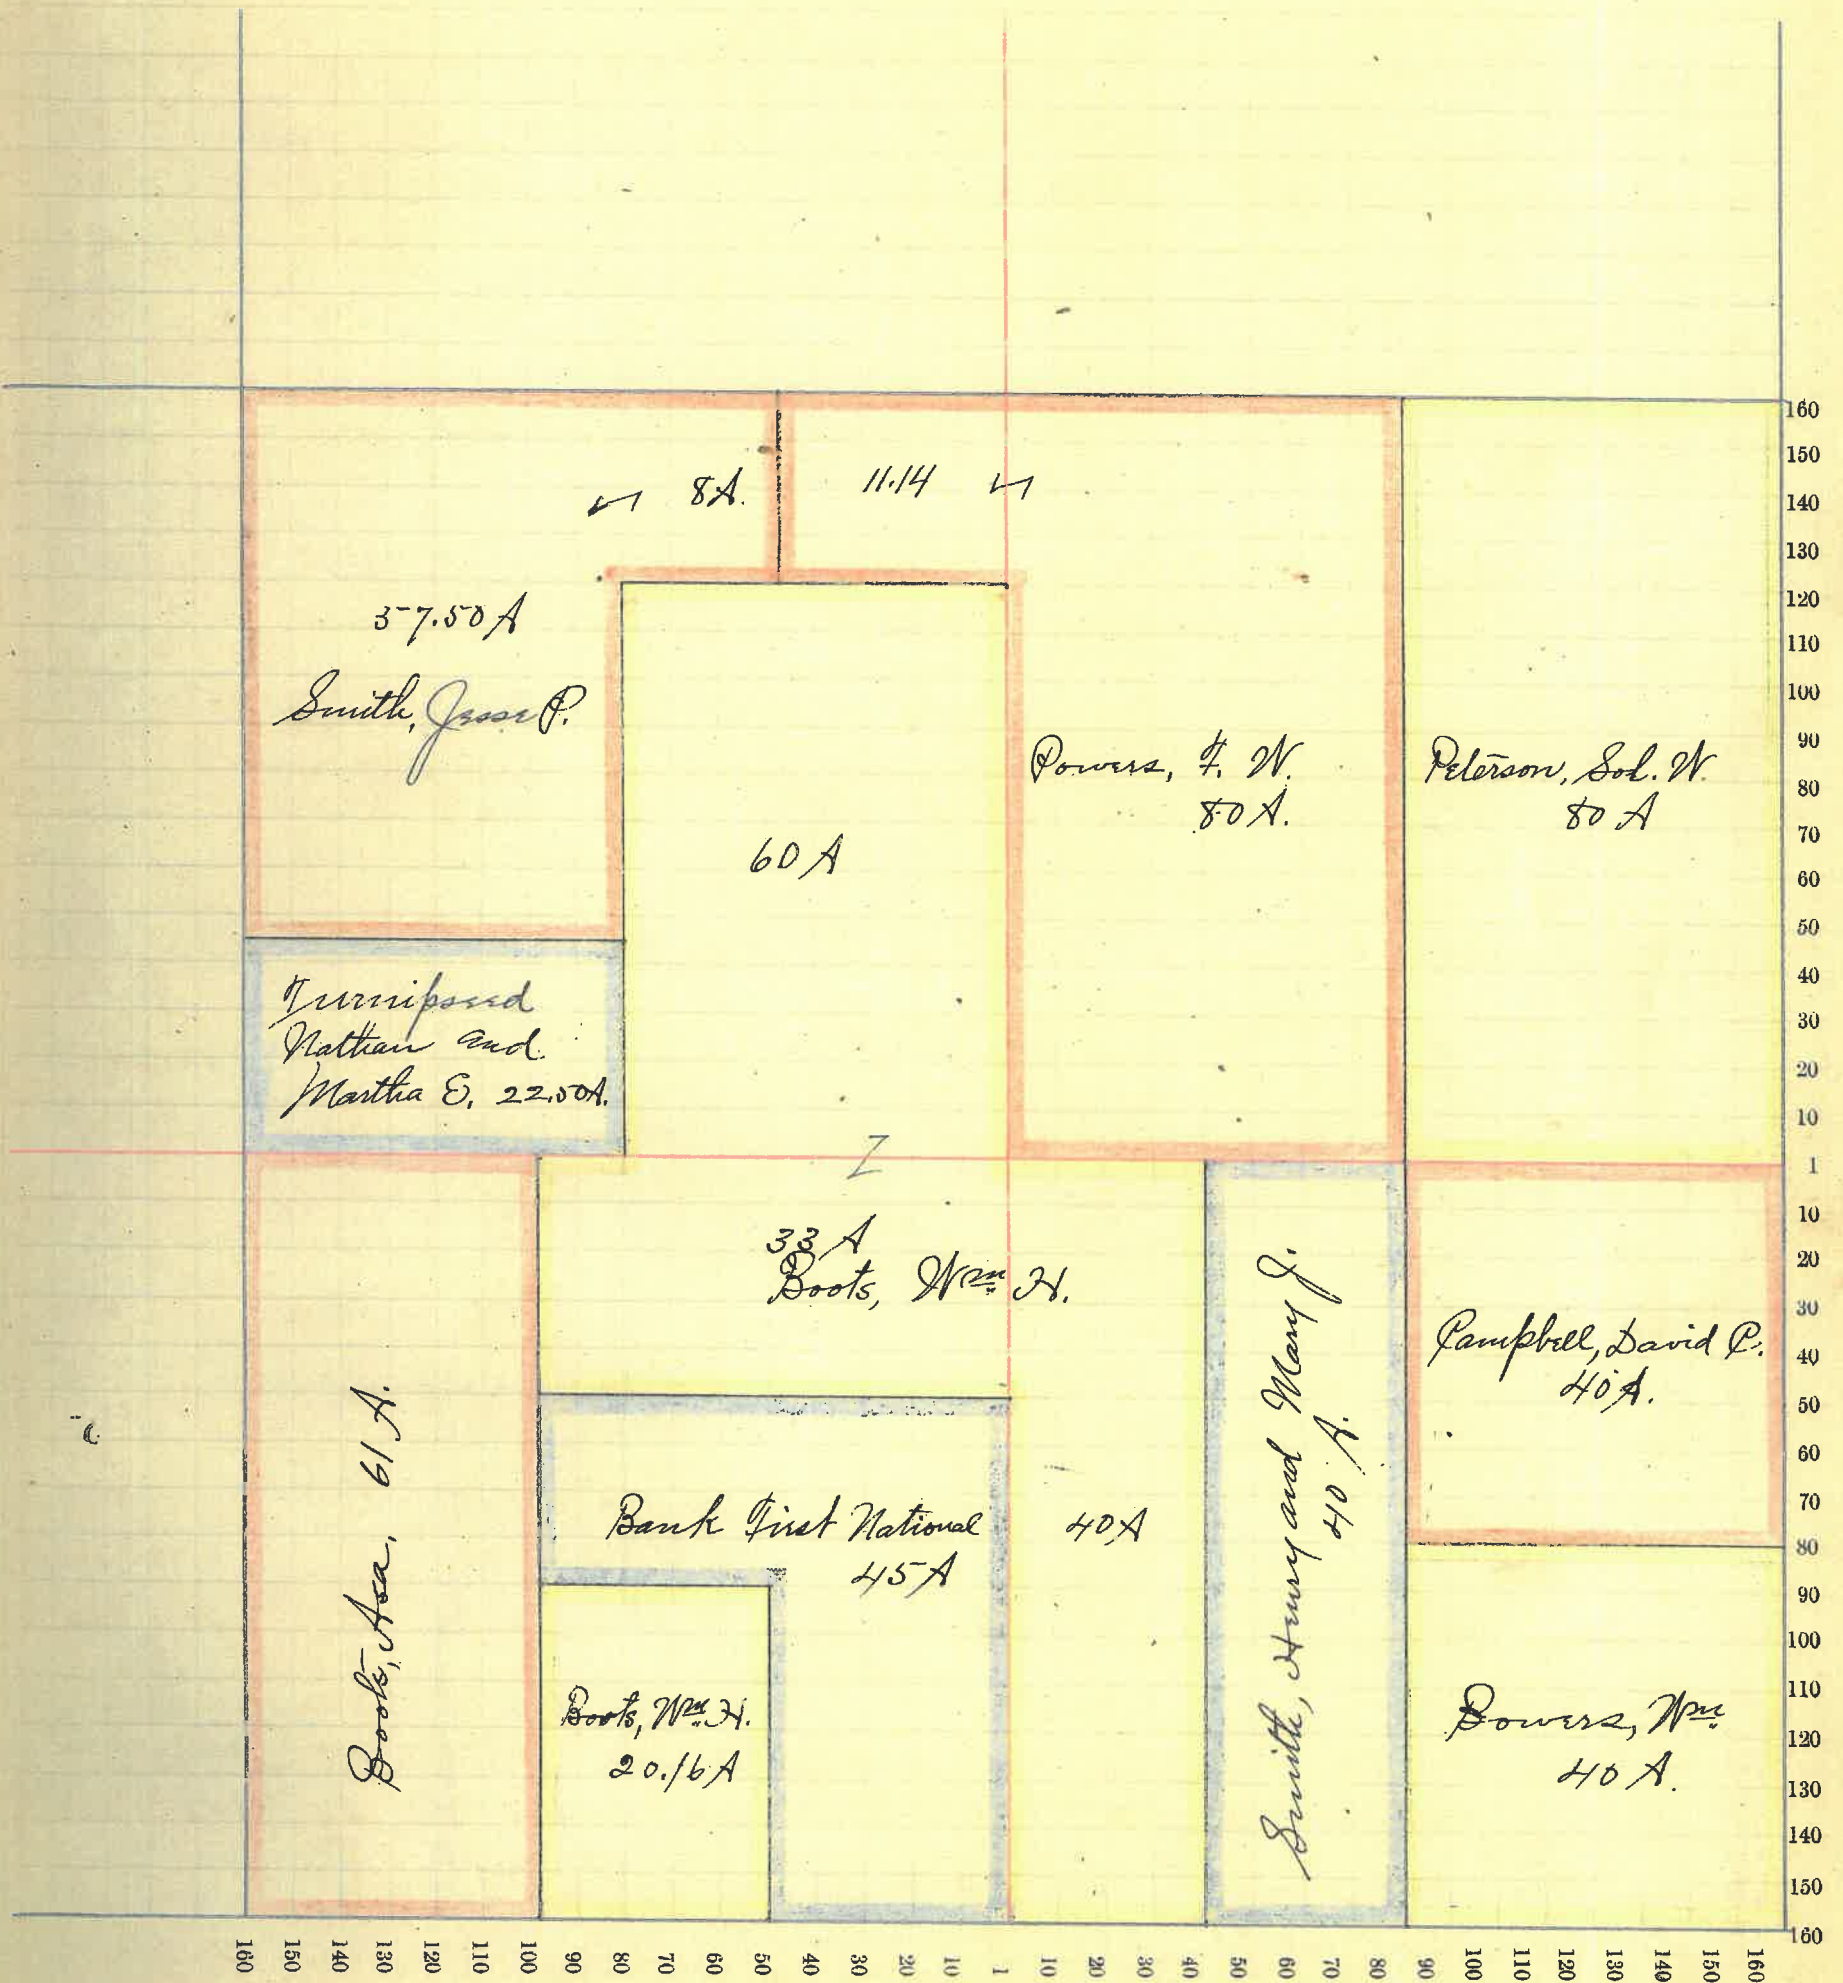 8A.
11.14
57.50 A
Smith, Jesse P.
60 A
Powers, F. W.
80 A.
Peterson, Sol. W.
80 A
Turnipseed
Nathan and
Martha E. 22.50A.
33 A
Boots, Wm H.
Boots, Asa, 61 A.
Bank First National
45 A
40 A
Boots, Wm. H.
20.16 A
Smith, Henry and Mary J.
40 A.
Campbell, David P.
40 A.
Bowers, Wm
40 A.
160
150
140
130
120
110
100
90
80
70
60
50
40
30
20
10
1
10
20
30
40
50
60
70
80
90
100
110
120
130
140
150
160
160 150 140 130 120 110 100 90 80 70 60 50 40 30 20 10 1 10 20 30 40 50 60 70 80 90 100 110 120 130 140 150 160